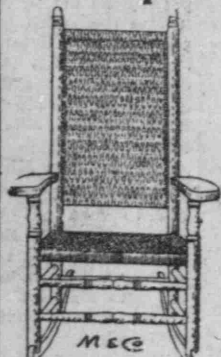 M & Co